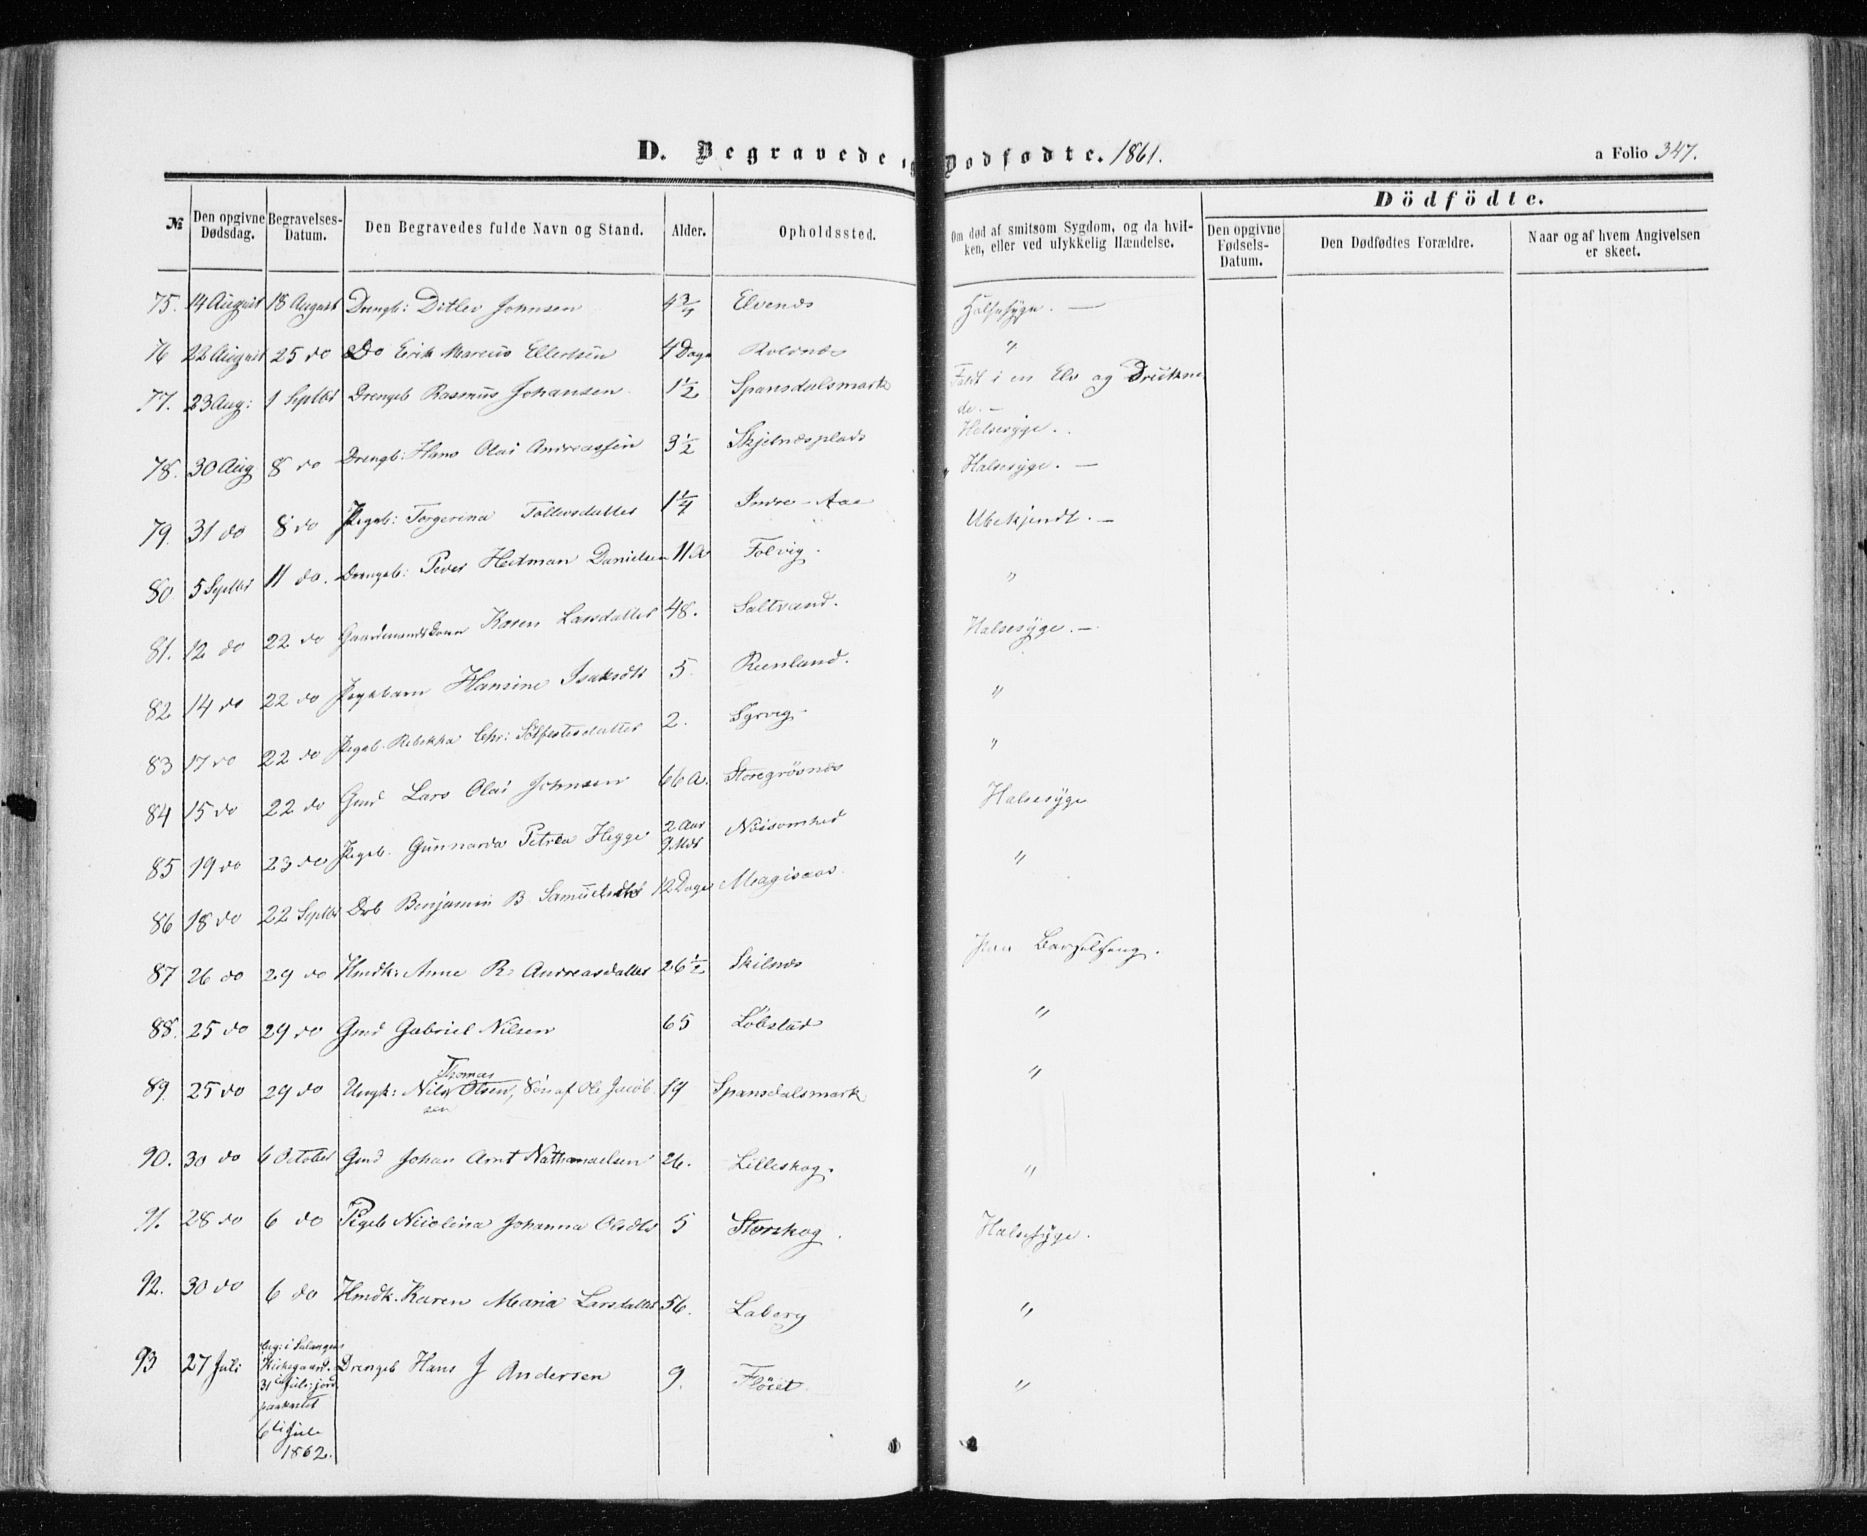 D. Begravede og Dødfødte. 1861.
a Folio 347.
№
Den opgivne Dødsdag.
Begravelses-Datum.
Den Begravedes fulde Navn og Stand.
Alder.
Opholdssted.
Om død af smitsom Sygdom, og da hvilken, eller ved ulykkelig Hændelse.
Dödfödte.
Den opgivne Fødsels-Datum.
Den Dødfødtes Forældre.
Naar og af hvem Angivelsen er skeet.
75. 14 August 18 August Drengb: Ditlev Johnsen 4 3/4 Elvenæs Halsesyge. —
76 22 August 25 do Do Erik Marcus Ellertsen 4 Dage Roldnæs "
77. 23 Aug: 1 Septbr Drengeb Rasmus Johansen 1 1/2 Spansdalsmark Faldt i en Elv og Druknede. —
78. 30 Aug 8 do Drengb: Hans Olai Andreassen 3 1/2 Skjelnæsplads Halsesyge.
79. 31 do 8 do Pigeb: Torgerina Tollevsdatter 1 1/4 Indre-Aae Halsesyge. —
80 5 Septbr 11 do. Drengeb: Peder Heitman Danielsen 11 A Folvig. Ubekjendt. —
81. 12 do 22 do Gaardmandskone Karen Larsdatter 48. Saltvand. "
82 14 do 22 do Pigebarn Hansine Isaksdtr 5. Reenland. Halsesyge. —
83 17 do 22 do Pigeb. Rebekka Chr: Solfestersdatter 2. Sørvig. "
84 15 do 22 do Gmd Lars Olai Johnsen 66 A. Storegrøsnæs "
85 19 do 23 do Pigeb. Gunnarda Petrea Hegge 2 Aar 9 Mdr Nøisomhed Halsesyge
86 18 do 22 Septbr Drb Benjamin B 12 Dage "
87 26 do 29 do Hmdk: Anne R. Andreasdatter 26 1/2 Skilnæs Paa Barselseng.
88. 25 do 29 do Gmd Gabriel Nilsen 65 Løbstad "
Thomas
89. 25 do 29 do Ungk: Nils Olsen, Søn af Ole Jacobsen 19 Spansdalsmark "
90. 30 do 6 October Gmd Johan Arnt Nathanaelsen 26. Lilleskog. "
91. 28 do 6 do Pigeb Nicolina Johanna Olsdtr 5 Storskog. Halsesyge.
92. 30 do 6 do Hmdk. Karen Maria Larsdatter 56. Laberg "
93 27 Juli beg: i Salangens Kirkegaard 31 Juli, jord paakastet 6te Juli 1862. Drengeb Hans J Andersen 9. Fløiet. "